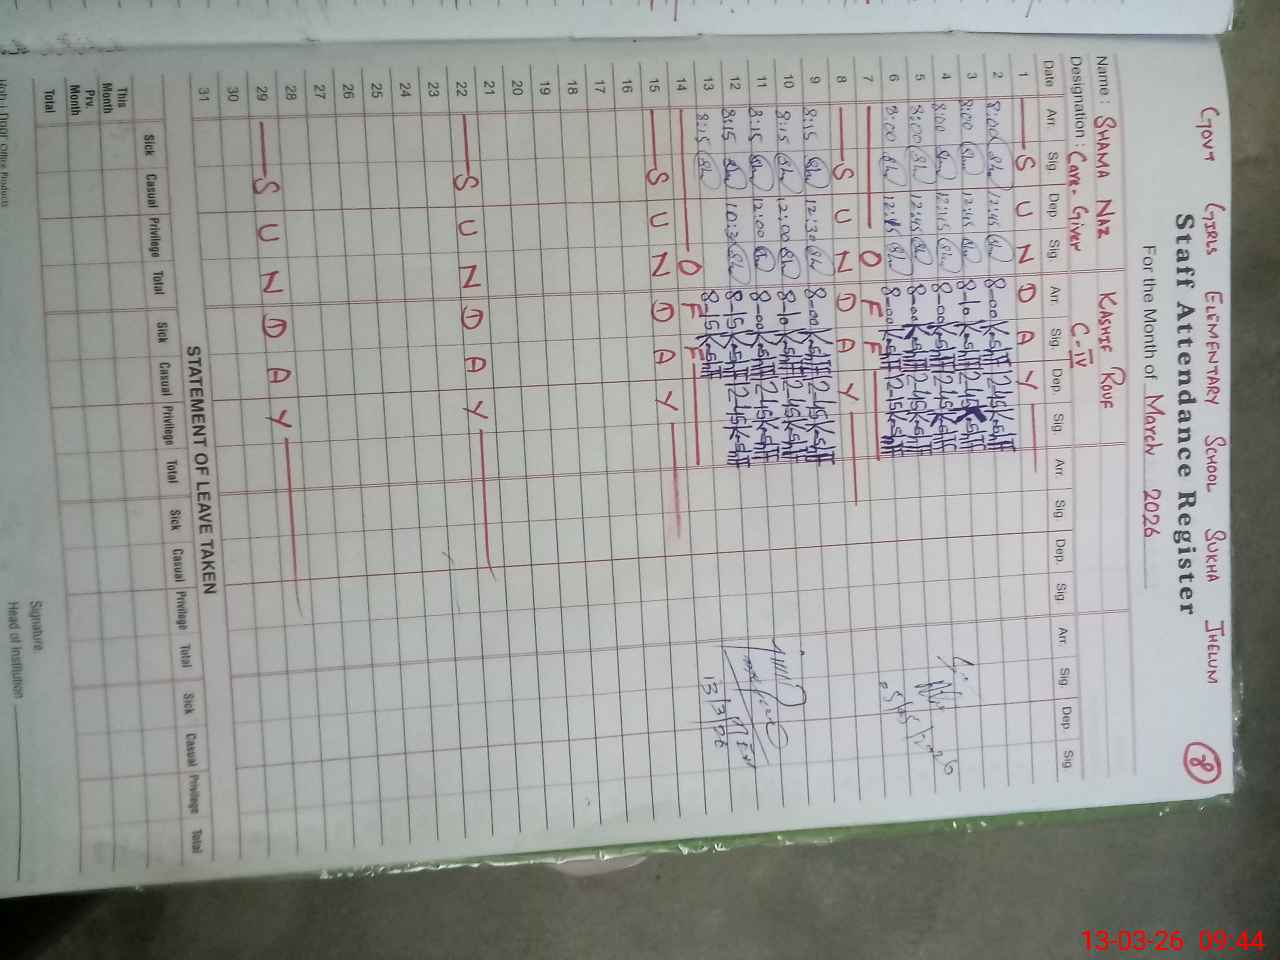 GOVT GIRLS ELEMENTARY SCHOOL SUKHA JHELUM
8
Staff Attendance Register
For the Month of March 2026
Name: SHAMA NAZ KASHIF ROUF
Designation: Care-Giver C-IV
Date Arr. Sig. Dep. Sig. Arr. Sig. Dep. Sig. Arr. Sig. Dep. Sig. Arr. Sig. Dep. Sig.
1 SUNDAY
2 8:00 12:45 8-00 2-45
3 8:00 12:45 8-10 2-45
4 8:00 12:15 8-00 2-45
5 8:00 12:45 8-00 2-45
6 8:00 12:15 8-00 12-15
7 OFF
8 SUNDAY
9 8:15 12:30 8-00 2-45
10 8:15 12:00 8-10 2-45
11 8:15 12:00 8-00 2-45
12 8:15 10:30 8-15 2-45
13 8:15 8-15
13/3/26
14 OFF
15 SUNDAY
16
17
18
19
20
21
22 SUNDAY
23
24
25
26
27
28
29 SUNDAY
30
31
STATEMENT OF LEAVE TAKEN
Sick Casual Privilege Total Sick Casual Privilege Total Sick Casual Privilege Total Sick Casual Privilege Total
This Month
Prv. Month
Total
Signature
Head of Institution
13-03-26 09:44